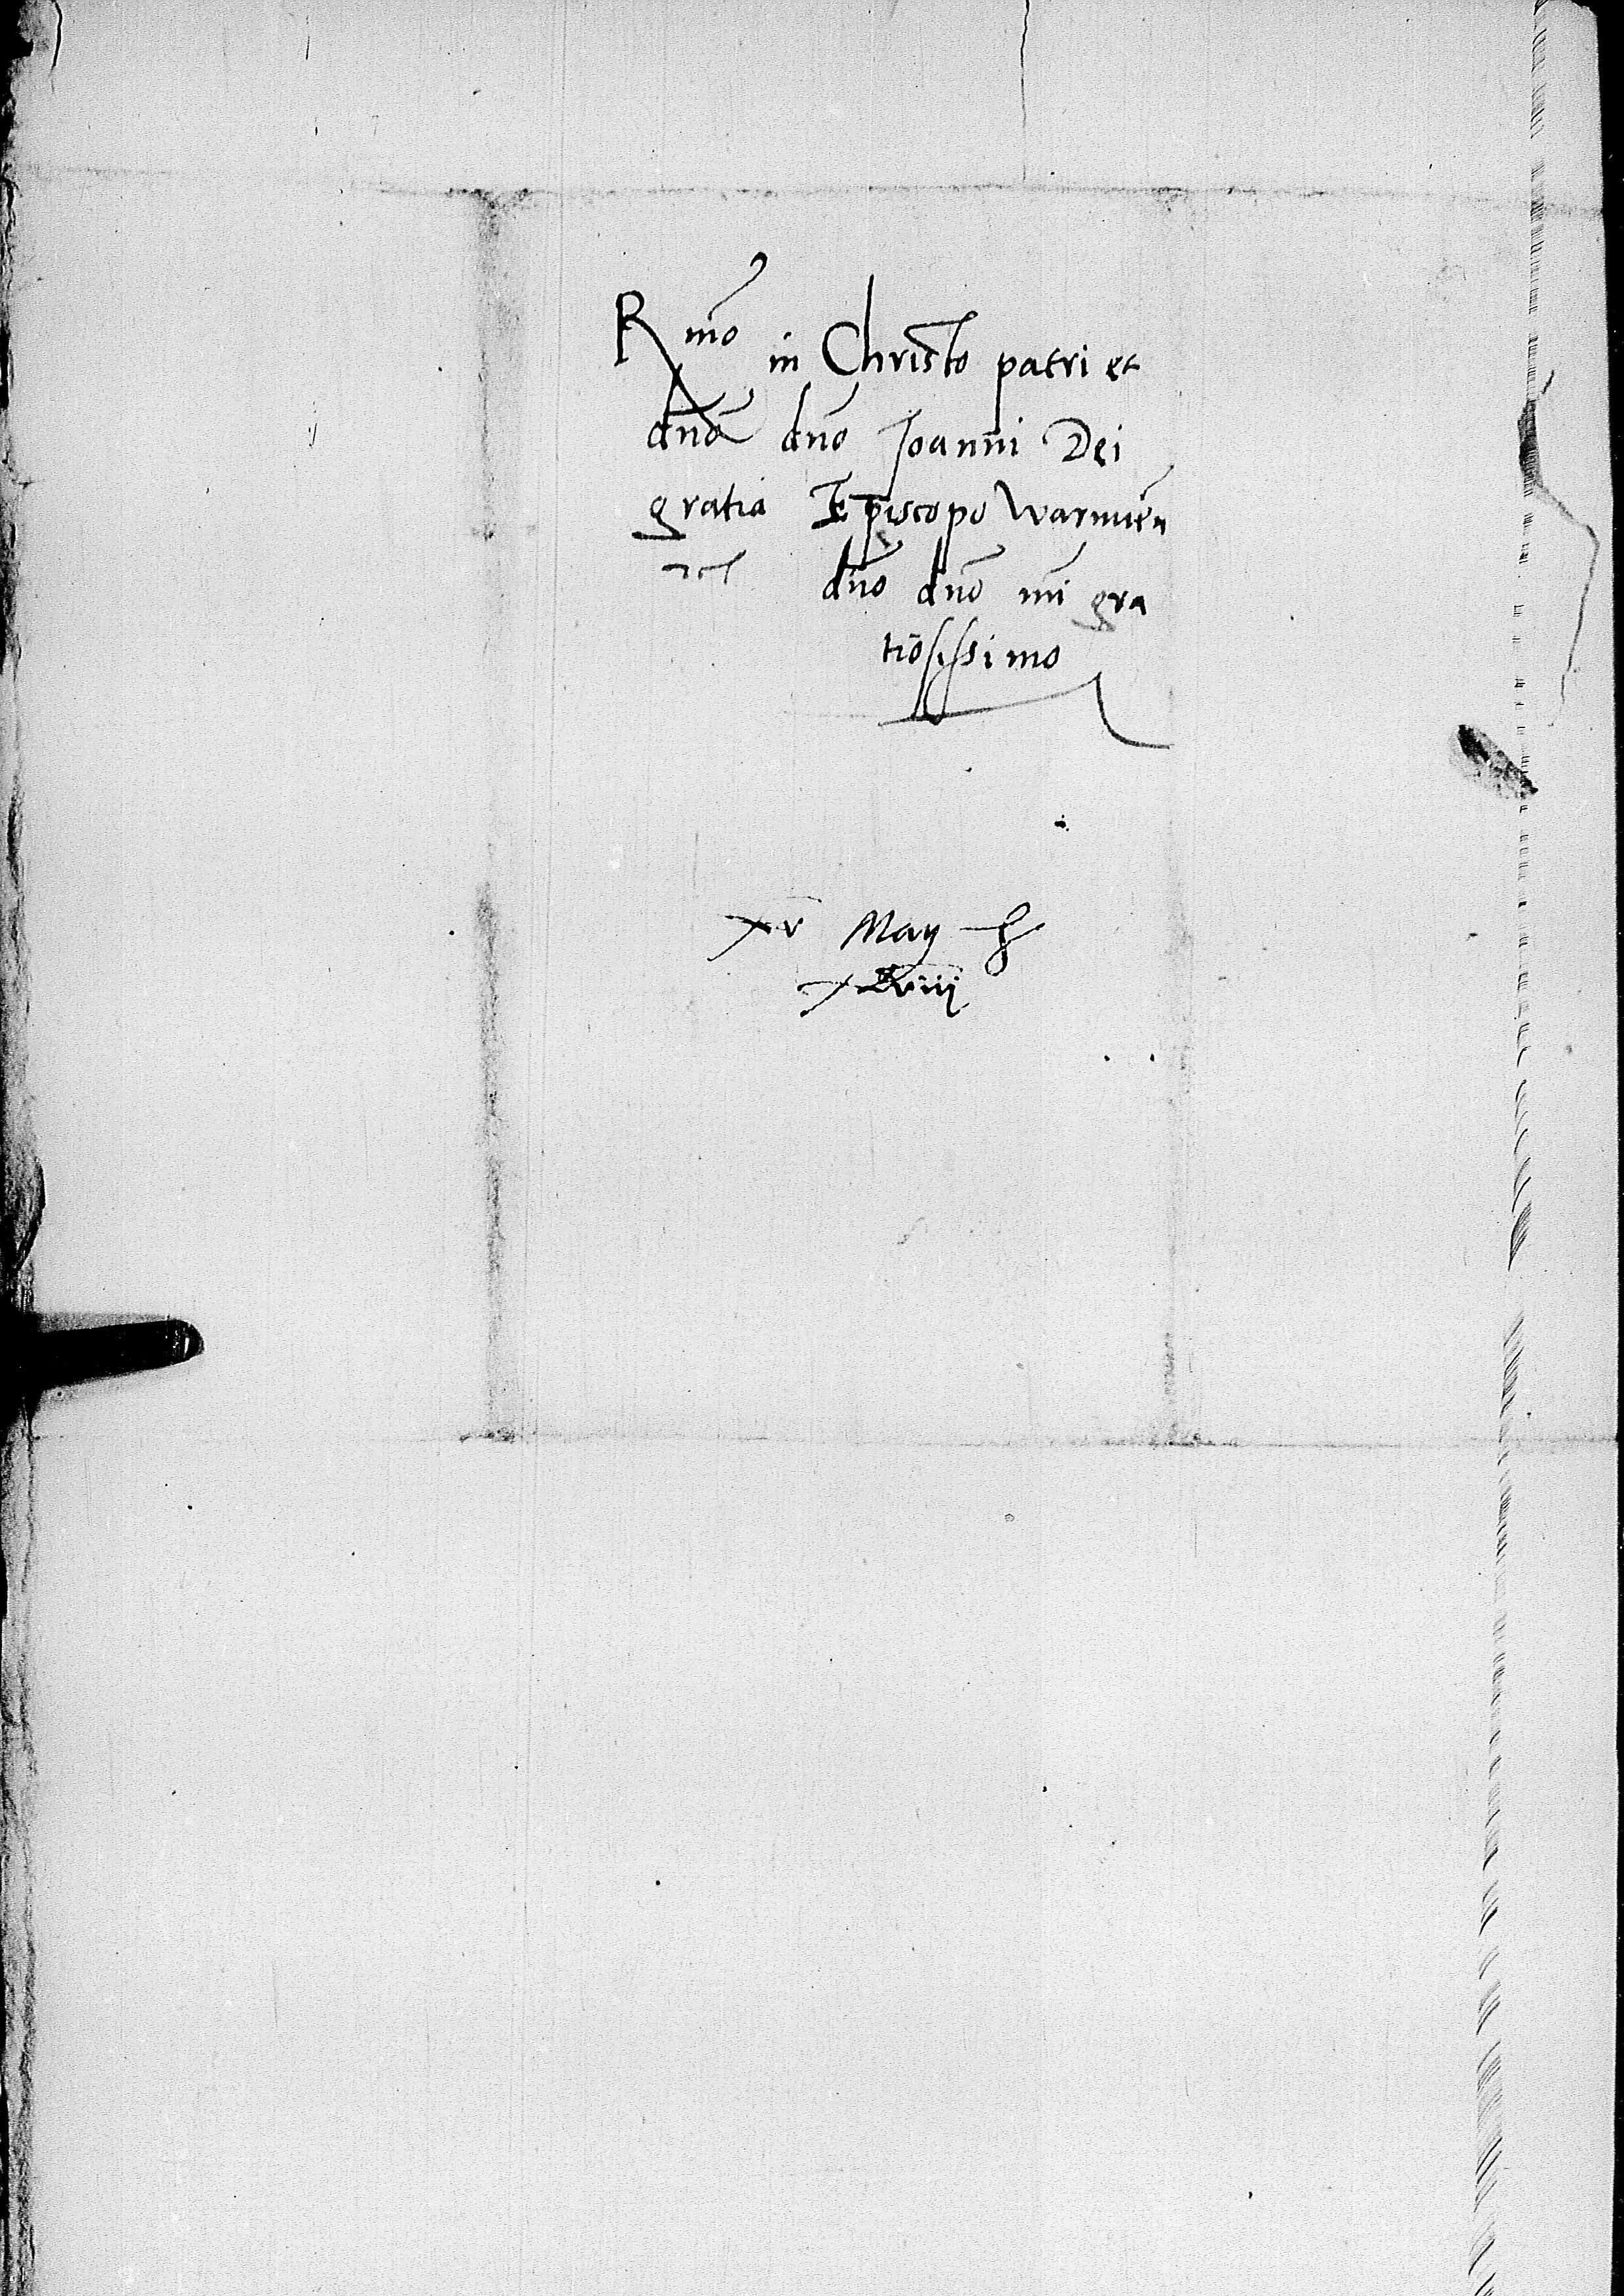 Rmo in Christo patri et
dno dno Joanni Dei
gratia Episcopo Warmien
etc dno dno mi gra
tiosissimo
xv May